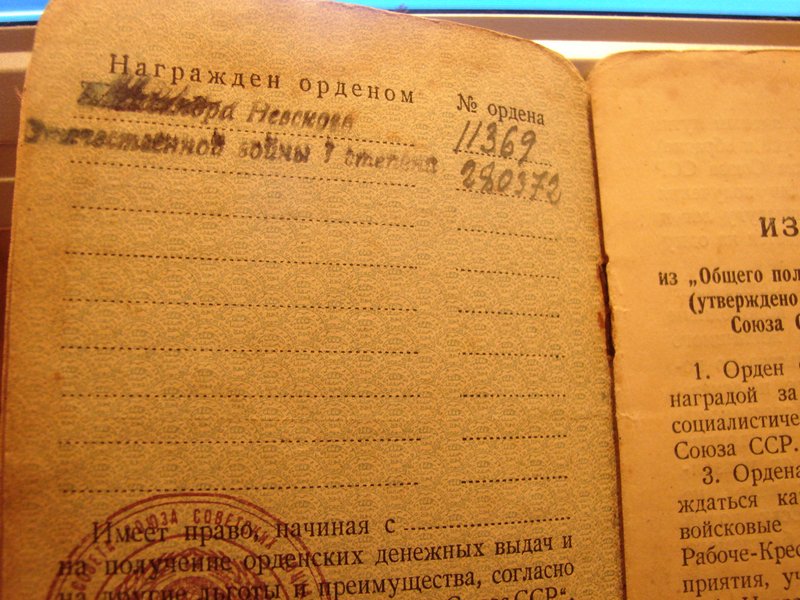 Награжден орденом
№ ордена
Александра Невскова
11369
Отечественной войны 1 степени
280372
Имеет право, начиная с
на получение орденских денежных выдач и
на другие льготы и преимущества, согласно
Союза ССР“.
СОЮЗА СОВЕТСКИХ
ИЗ
из „Общего пол
(утверждено
Союза С
1. Орден
наградой за
социалистиче
Союза ССР.
3. Ордена
ждаться ка
войсковые
Рабоче-Крес
приятия, уч